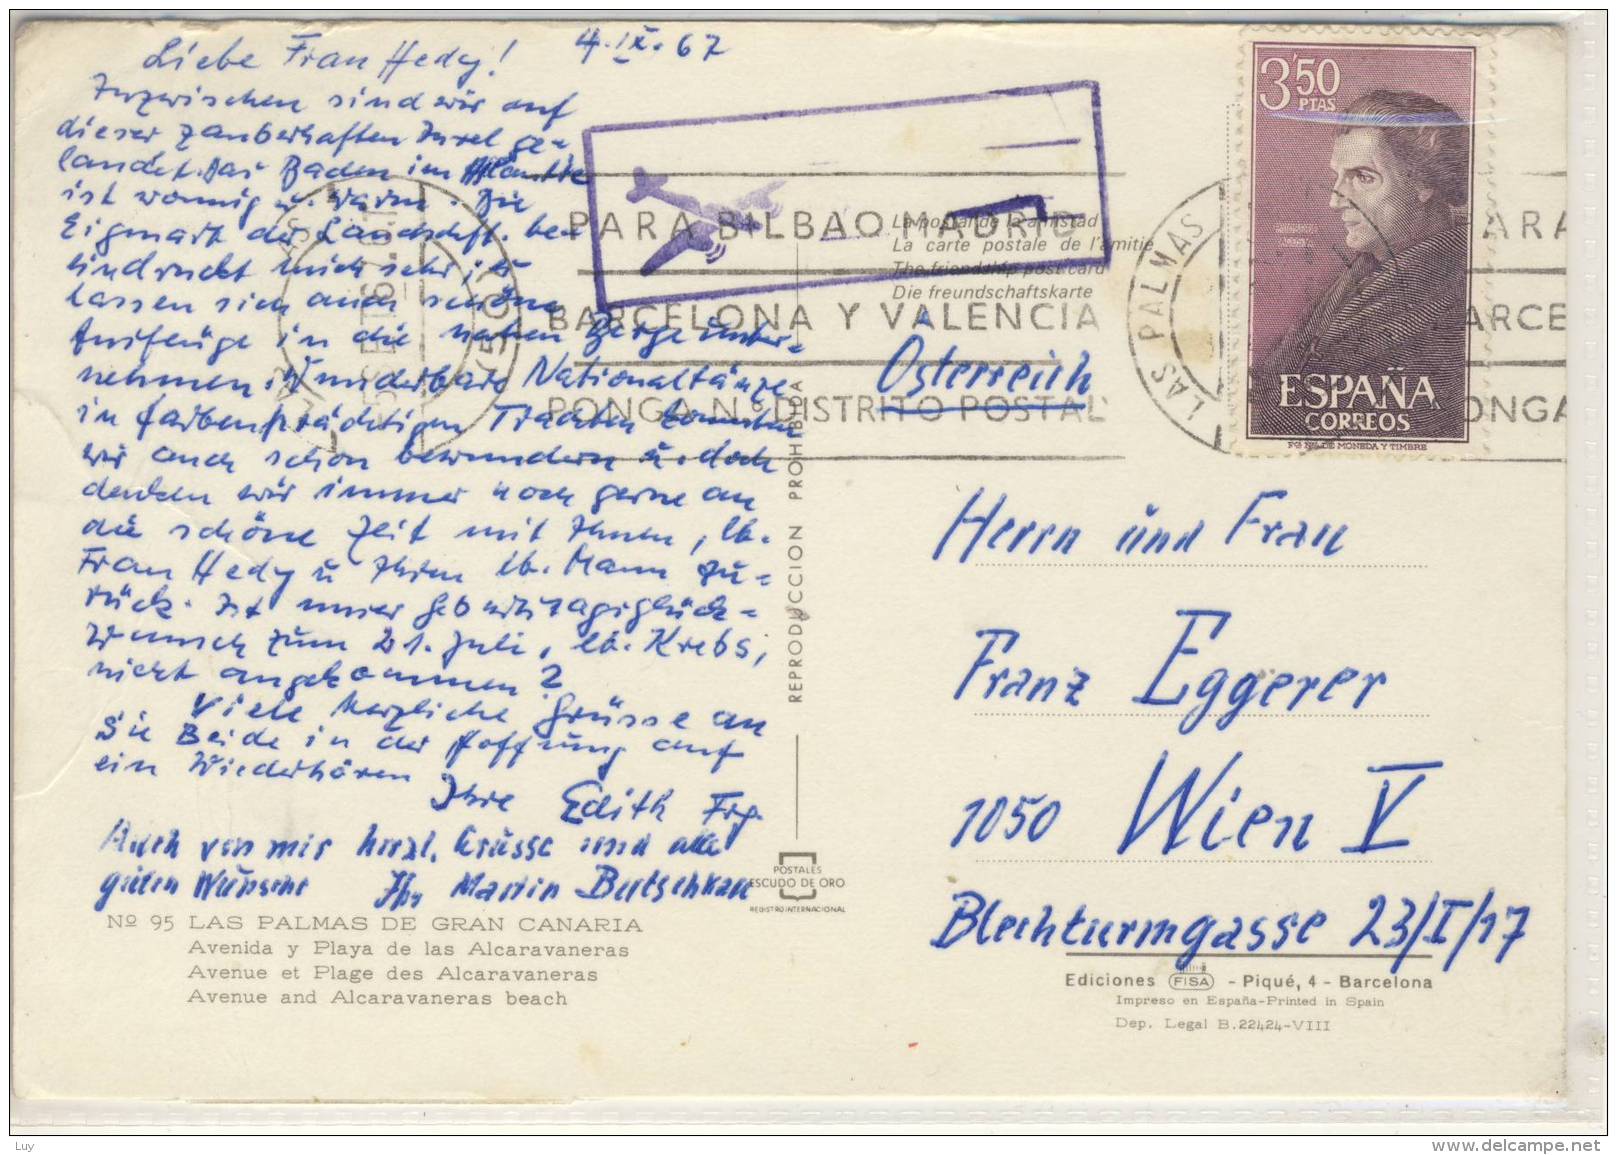 Liebe Frau Hedy! 4.IX.67
Inzwischen sind wir auf
dieser zauberhaften Insel ge-
landet. Das Baden im Atlantik
ist wonnig u. warm. Die
Eigenart der Landschft. be-
eindruckt mich sehr, es
lassen sich auch schöne
Ausflüge in die nahen Berge unter-
nehmen. Wunderbare Nationaltänze
in farbenprächtigen Trachten konnten
wir auch schon bewundern u. doch
denken wir immer noch gerne an
die schöne Zeit mit Ihnen, lb.
Frau Hedy u Ihrem lb. Mann zu-
rück. Ist unser Geburtstagsglück-
wunsch zum 21. Juli, lb. Krebs,
nicht angekommen?
Viele herzliche Grüsse an
Sie Beide in der Hoffnung auf
ein Wiederhören
Ihre Edith Frg.
Auch von mir herzl. Grüsse und alle
guten Wünsche Ihr Martin
Nº 95 LAS PALMAS DE GRAN CANARIA
Avenida y Playa de las Alcaravaneras
Avenue et Plage des Alcaravaneras
Avenue and Alcaravaneras beach
REPRODUCCION PROHIBIDA
POSTALES
ESCUDO DE ORO
REGISTRO INTERNACIONAL
La postal de la amistad
La carte postale de l'amitie
The friendship post card
Die freundschaftskarte
PARA BILBAO MADRID
BARCELONA Y VALENCIA
PONGA N.º DISTRITO POSTAL
LAS PALMAS
PARA
BARCE
PONGA
3'50
PTAS
ESPAÑA
CORREOS
F.N. DE MONEDA Y TIMBRE
Österreich
Herrn und Frau
Franz Eggerer
1050 Wien V
Blechturmgasse 23/I/17
Ediciones FISA - Piqué, 4 - Barcelona
Impreso en España-Printed in Spain
Dep. Legal B.22424-VIII
Luy
www.delcampe.net